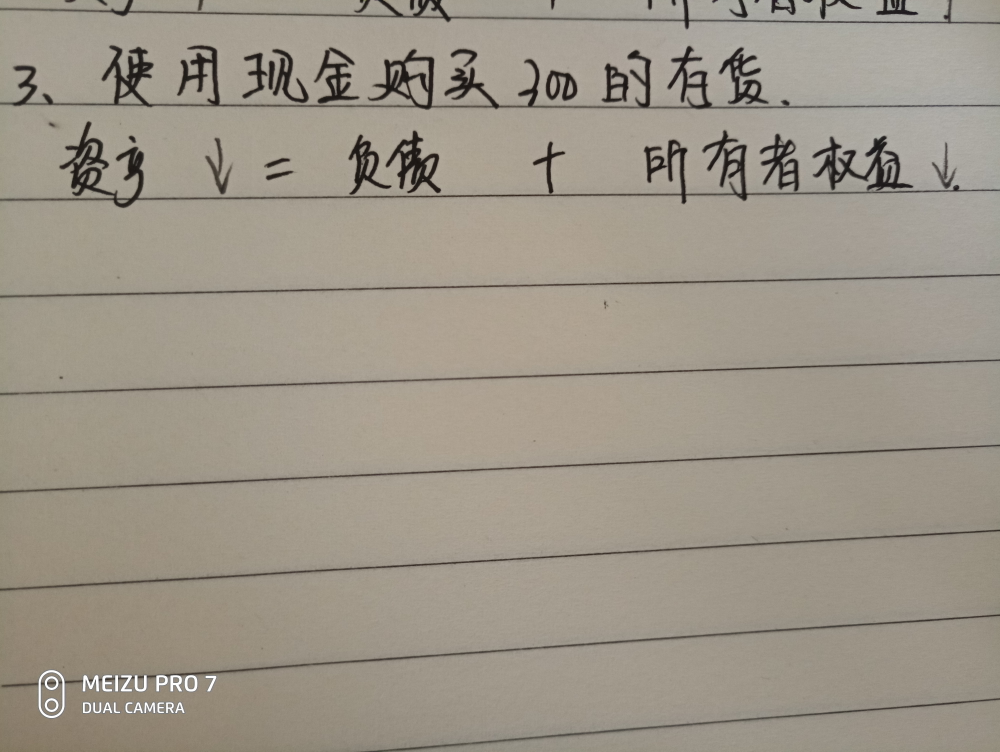 负债 + 所有者权益
3、使用现金购买300的有货.
资亨 ↓ = 负债 + 所有者权益 ↓.
MEIZU PRO 7
DUAL CAMERA